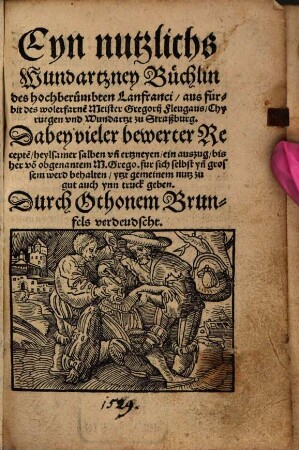 Eyn nutzlichs
Wundartzney Büchlin
des hochberümbten Lanfranci / aus für-
bit des wolerfarnē Meister Gregorij Fleugaus / Chy
rurgen vnd Wundartzt zu Straßburg.
Dabey vieler bewerter Re
cepte / heylsamer salben vñ ertzneyen / ein auszug / bis
her vō obgenantem M. Grego. fur sich selbst yñ gros
sem werd behalten / ytzt gemeinem nutz zu
gut auch ynn truck geben.
Durch Othonem Brun-
fels verdeudscht.
1529.